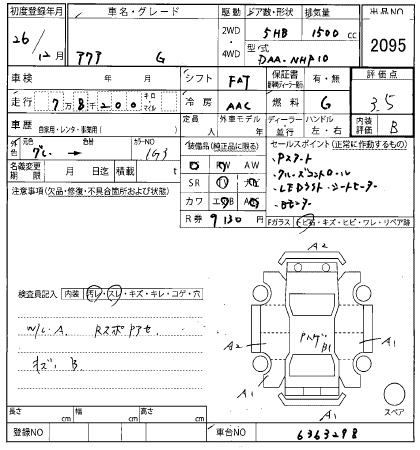 初度登録年月 車名・グレード 駆動 ドア数・形状 排気量 出品NO
26/12月 アクア G 2WD・4WD 5HB 1500cc 2095
型式 DAA-NHP10
車検 年 月 シフト FAT 保証書 有・無 評価点
走行 7万8千200 キロ・マイル 冷房 AAC 燃料 G ハンドル 左・右 3.5
車歴 自家用・レンタ・事業用( ) 定員 人 外車モデル 年 ディーラー・並行 内装評価 B
外色 元色 グレー → 色替 カラーNO 1G3
装備品(純正品に限る)
PS PW AW
SR ナビ
カワ エアB
R券 9130円
セールスポイント(正常に作動するもの)
・Pスタート
・クルーズコントロール
・LEDライト・シートヒーター
・Bモニター
名義変更期限 月 日迄 積載 t
注意事項(欠品・修復・不具合箇所および状態)
Fガラス トビ石・キズ・ヒビ・ワレ・リペア跡
検査員記入 内装 汚レ・スレ・キズ・キレ・コゲ・穴
W/L・A RスポアセA
キズ B
A2
A2
A1
A1
A1
B1
スペア
長さ cm 幅 cm 高さ cm
登録NO 車台NO 6363298